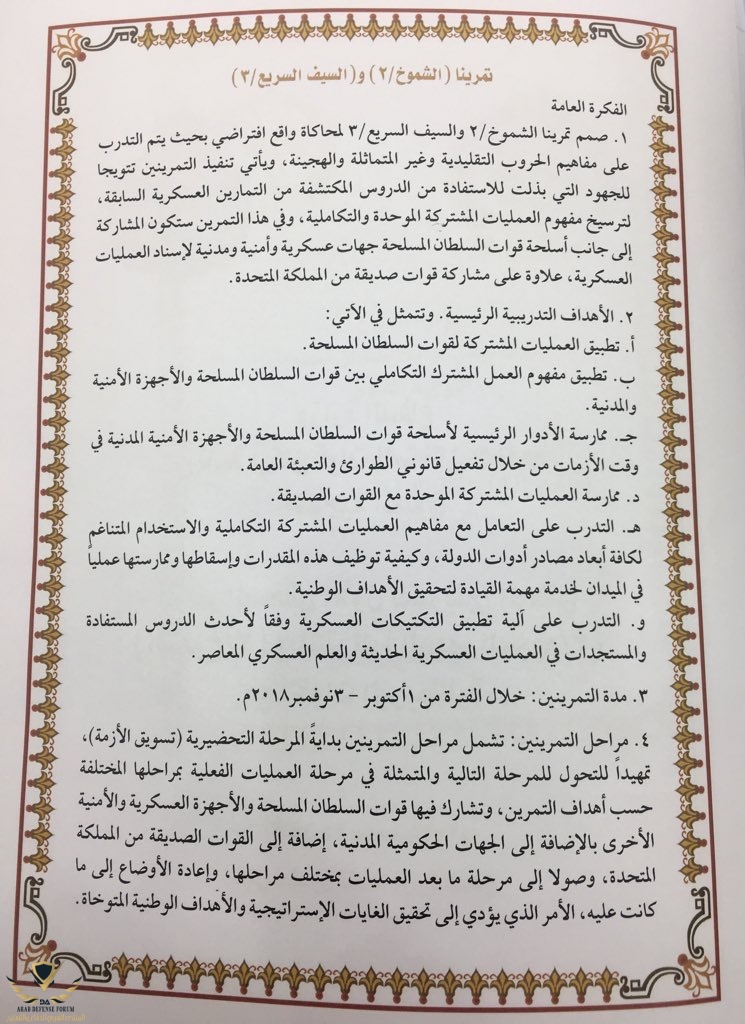 تمرينا (الشموخ/٢) و(السيف السريع/٣)
الفكرة العامة
١. صمم تمرينا الشموخ/٢ والسيف السريع/٣ لمحاكاة واقع افتراضي بحيث يتم التدرب
على مفاهيم الحروب التقليدية وغير المتماثلة والهجينة، ويأتي تنفيذ التمرينين تتويجا
للجهود التي بذلت للاستفادة من الدروس المكتشفة من التمارين العسكرية السابقة،
لترسيخ مفهوم العمليات المشتركة الموحدة والتكاملية، وفي هذا التمرين ستكون المشاركة
إلى جانب أسلحة قوات السلطان المسلحة جهات عسكرية وأمنية ومدنية لإسناد العمليات
العسكرية، علاوة على مشاركة قوات صديقة من المملكة المتحدة.
٢. الأهداف التدريبية الرئيسية. وتتمثل في الآتي:
أ. تطبيق العمليات المشتركة لقوات السلطان المسلحة.
ب. تطبيق مفهوم العمل المشترك التكاملي بين قوات السلطان المسلحة والأجهزة الأمنية
والمدنية.
جـ. ممارسة الأدوار الرئيسية لأسلحة قوات السلطان المسلحة والأجهزة الأمنية المدنية في
وقت الأزمات من خلال تفعيل قانوني الطوارئ والتعبئة العامة.
د. ممارسة العمليات المشتركة الموحدة مع القوات الصديقة.
هـ. التدرب على التعامل مع مفاهيم العمليات المشتركة التكاملية والاستخدام المتناغم
لكافة أبعاد مصادر أدوات الدولة، وكيفية توظيف هذه المقدرات وإسقاطها وممارستها عملياً
في الميدان لخدمة مهمة القيادة لتحقيق الأهداف الوطنية.
و. التدرب على آلية تطبيق التكتيكات العسكرية وفقاً لأحدث الدروس المستفادة
والمستجدات في العمليات العسكرية الحديثة والعلم العسكري المعاصر.
٣. مدة التمرينين: خلال الفترة من ١أكتوبر – ٣نوفمبر٢٠١٨م.
٤. مراحل التمرينين: تشمل مراحل التمرينين بدايةً المرحلة التحضيرية (تسويق الأزمة)،
تمهيداً للتحول للمرحلة التالية والمتمثلة في مرحلة العمليات الفعلية بمراحلها المختلفة
حسب أهداف التمرين، وتشارك فيها قوات السلطان المسلحة والأجهزة العسكرية والأمنية
الأخرى بالإضافة إلى الجهات الحكومية المدنية، إضافة إلى القوات الصديقة من المملكة
المتحدة، وصولا إلى مرحلة ما بعد العمليات بمختلف مراحلها، وإعادة الأوضاع إلى ما
كانت عليه، الأمر الذي يؤدي إلى تحقيق الغايات الإستراتيجية والأهداف الوطنية المتوخاة.
DA
ARAB DEFENSE FORUM